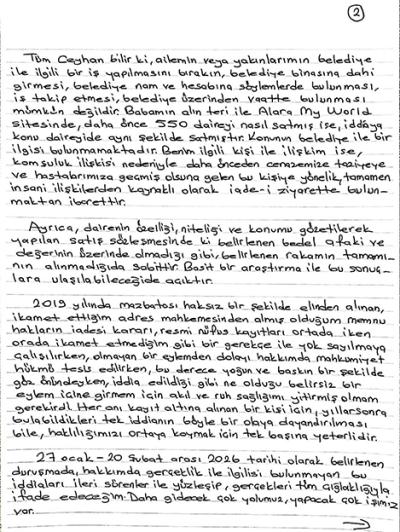 2
Tüm Ceyhan bilir ki, ailemin veya yakınlarımın belediye
ile ilgili bir iş yapılmasını bırakın, belediye binasına dahi
girmesi, belediye nam ve hesabına söylemlerde bulunması,
iş takip etmesi, belediye üzerinden vaatte bulunması
mümkün değildir. Babamın alın teri ile Alara My World
sitesinde, daha önce 550 daireyi nasıl satmış ise, iddiaya
konu daireyide aynı şekilde satmıştır. Konunun belediye ile bir
ilgisi bulunmamaktadır. Benim ilgili kişi ile ilişkim ise,
komşuluk ilişkisi nedeniyle daha önceden cenazemize taziyeye
ve hastalarımıza geçmiş olsuna gelen bu kişiye yönelik, tamamen
insani ilişkilerden kaynaklı olarak iade-i ziyarette bulun-
maktan ibarettir.
Ayrıca, dairenin özelliği, niteliği ve konumu gözetilerek
yapılan satış sözleşmesinde ki belirlenen bedel afaki ve
değerinin üzerinde olmadığı gibi, belirlenen rakamın tamamı-
nın alınmadığıda sabittir. Basit bir araştırma ile bu sonuç-
lara ulaşılabileceğide açıktır.
2019 yılında mazbatası haksız bir şekilde elinden alınan,
ikamet ettiğim adres mahkemesinden almış olduğum memnu
hakların iadesi kararı, resmi nüfus kayıtları ortada iken
orada ikamet etmediğim gibi bir gerekçe ile yok sayılmaya
çalışılırken, olmayan bir eylemden dolayı hakkımda mahkumiyet
hükmü tesis edilirken, bu derece yoğun ve baskın bir şekilde
göz önündeyken, iddia edildiği gibi ne olduğu belirsiz bir
eylem içine girmem için akıl ve ruh sağlığımı yitirmiş olmam
gerekirdi. Her anı kayıt altına alınan bir kişi için, yıllar sonra
bulabildikleri tek iddianın böyle bir olaya dayandırılması
bile, haklılığımızı ortaya koymak için tek başına yeterlidir.
27 ocak - 20 Şubat arası 2026 tarihi olarak belirlenen
duruşmada, hakkımda gerçeklik ile ilgilisi bulunmayan bu
iddiaları ileri sürenler ile yüzleşip, gerçekleri tüm çıplaklığıyla
ifade edeceğim. Daha gidecek çok yolumuz, yapacak çok işimiz
var.